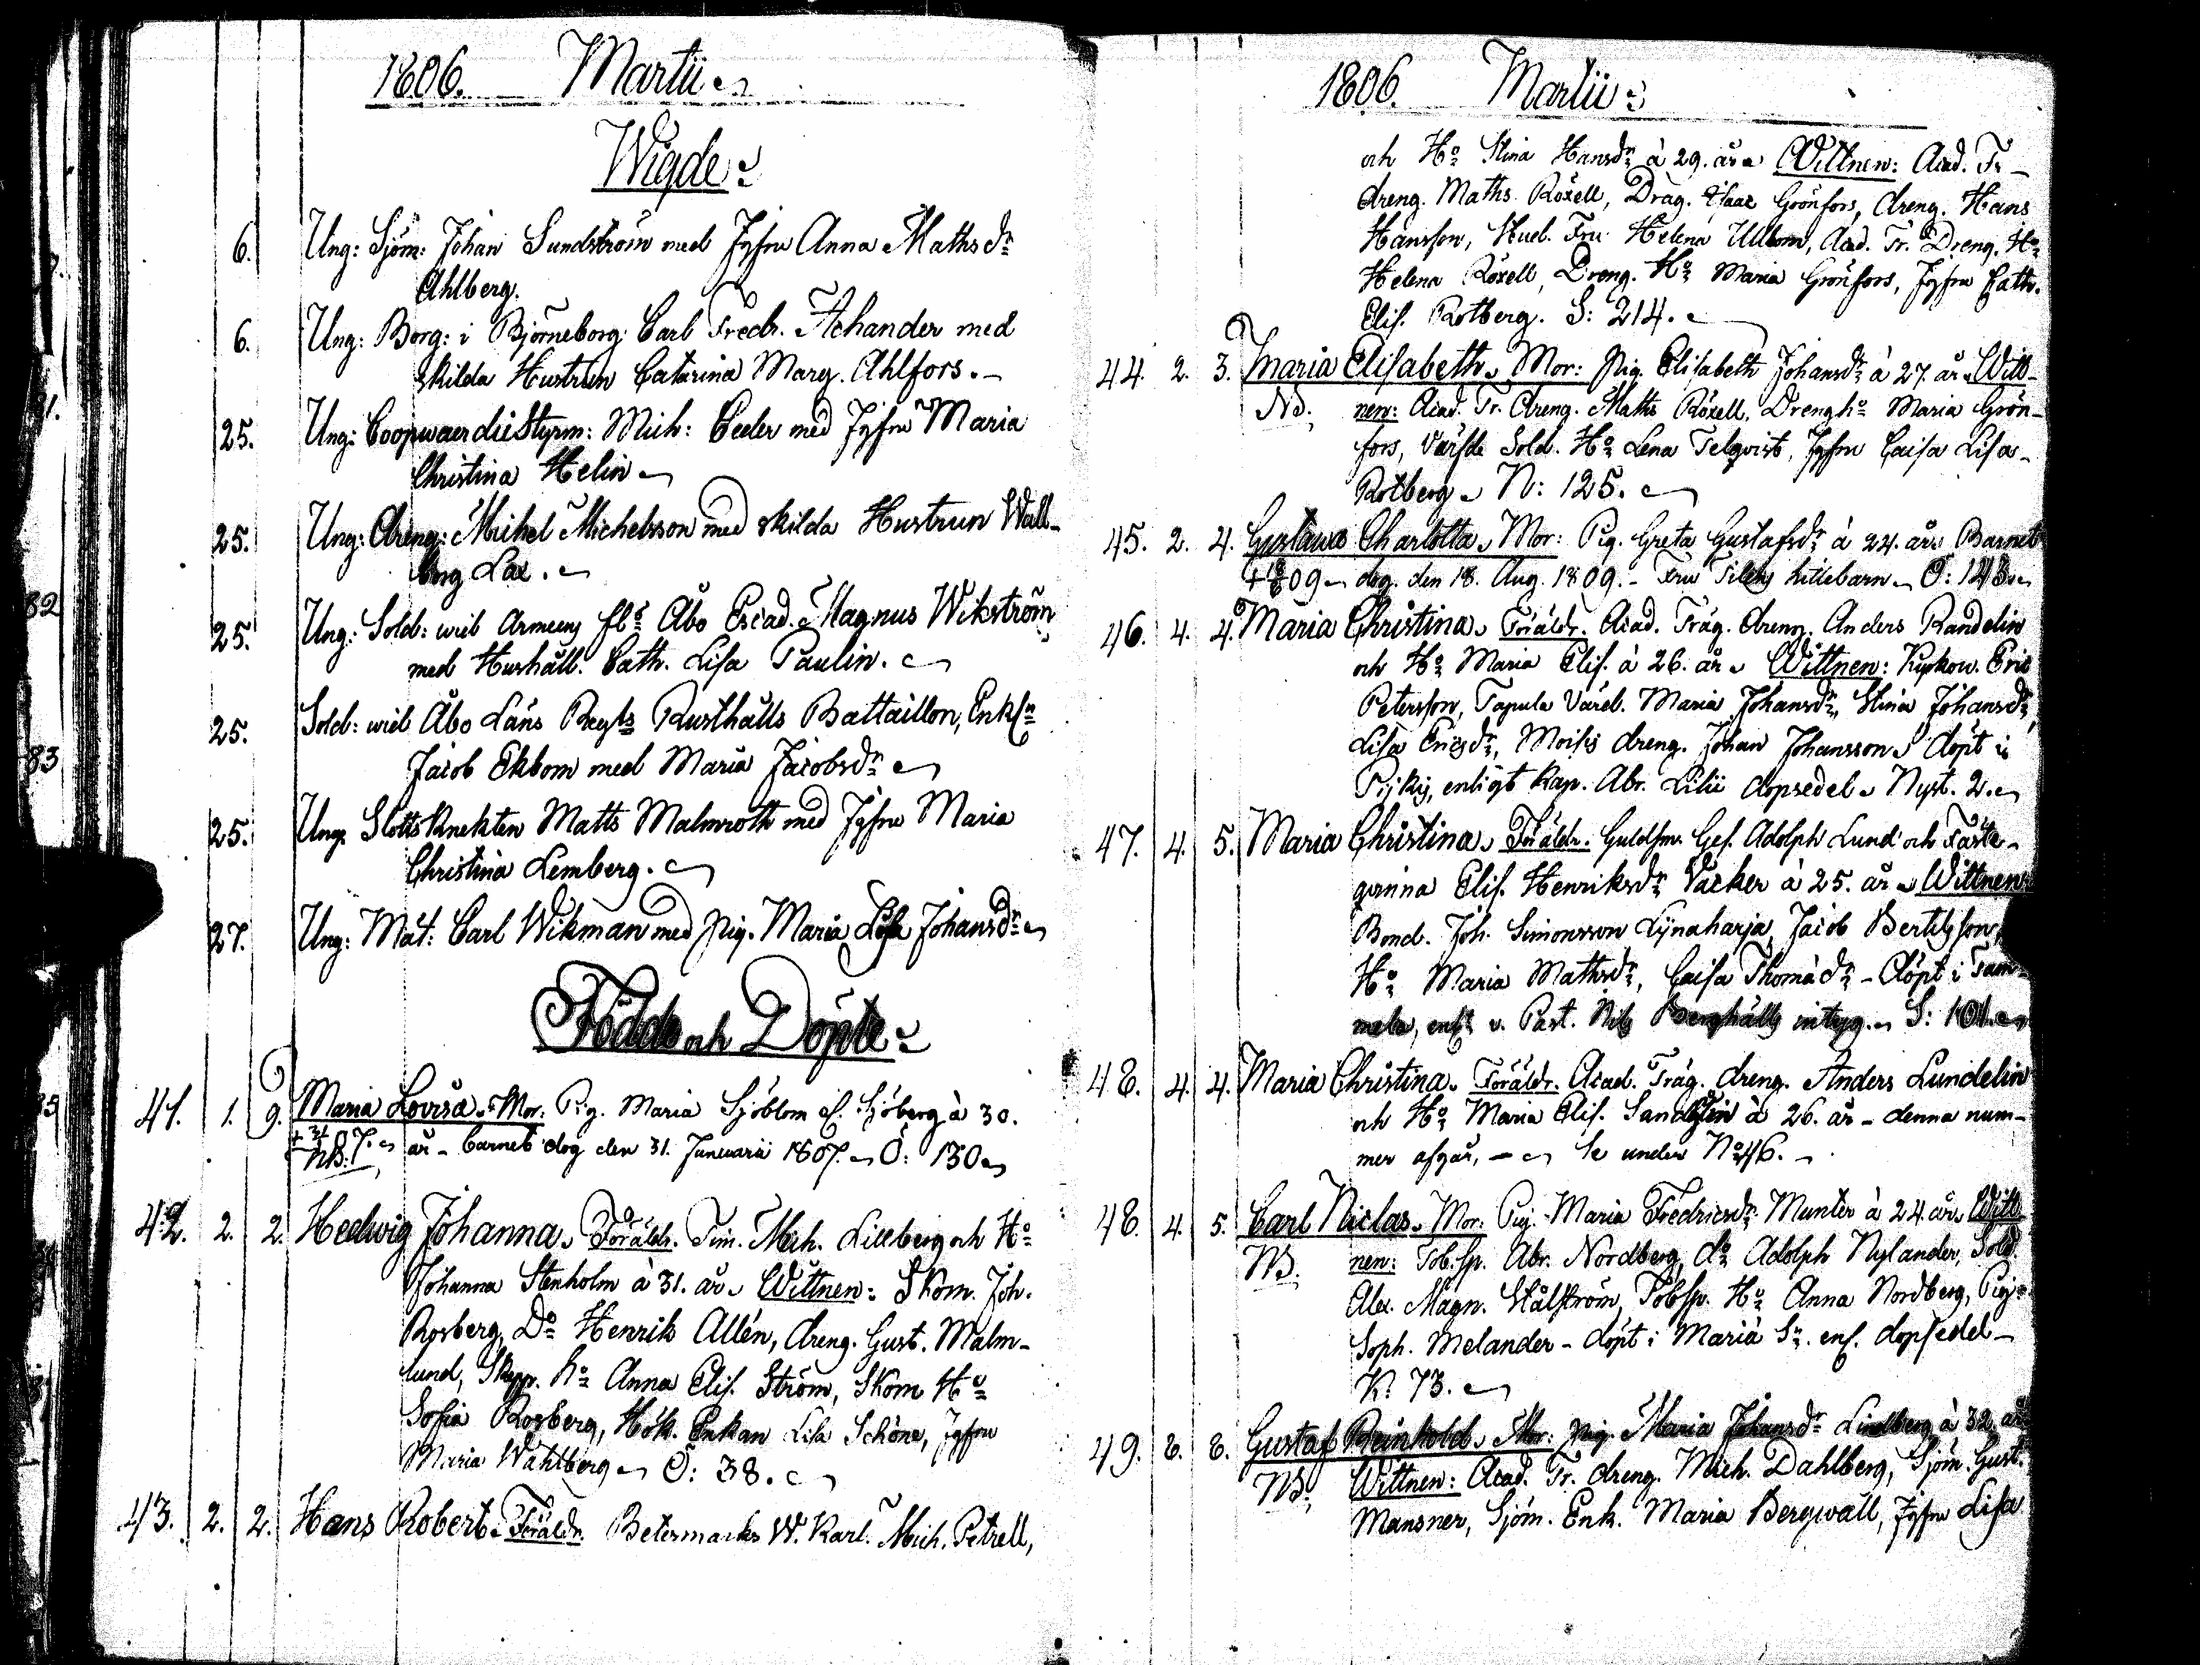 1806. Martii
Wigde
6. Ung: Sjöm: Johan Sundström med Jgfru Anna Mathsdr
Ahlberg.
6. Ung: Borg: i Björneborg: Carl Fredr. Achander med
skilda Hustrun Catarina Marg. Ahlfors.
25. Ung: Coopvaerdie Styrm: Mich: Ceder med Jgfru Maria
Christina Helin
25. Ung: dreng: Mikel Michelsson med skilda Hustrun Wall-
borg Lax.
25. Ung: Sold: wid Armeens Åbo Escad. Magnus Wikström
med Hushåll. Cath. Lisa Paulin.
25. Sold: wid Åbo Läns Regts Rusthålls Battaillon, Enkl
Jacob Ekbom med Maria Jacobsdr
25. Ung. SlottsKnekten Matts Malmroth med Jgfru Maria
Christina Lemberg.
27. Ung: Mat: Carl Wikman med pig. Maria Lisa Johansdr
Födde och Döpte
41. 1. 9. Maria Lovisa. Mor: Pig. Maria Sjöblom el. Sjöberg à 30.
år - barnet dog den 31. Januarii 1807. Ö: 130
NB:
42. 2. 2. Hedwig Johanna. Föräldr. Tim. Mich. Lilleberg och Ho
Johanna Stenholm à 31. år. Wittnen: Skom. Joh.
Rosberg, Do Henrik Allén, dreng. Gust. Malm-
lund, Skepp. ho Anna Elis. Ström, Skom Ho
Sofia Rosberg, Hök. Enkan Lisa Schöne, Jgfru
Maria Wahlberg Ö: 38.
43. 2. 2. Hans Robert. Föräldr. W. Karl. Mich. Petrell,
1806. Martii
och Ho Stina Hansdr à 29. år Wittnen: Acad. Tr-
dreng. Maths Roxell, Drag. Isaac Grönfors, dreng. Hans
Hansson, Fru Helena Ullbom, Acad. Tr. Dreng. Ho
Helena Roxell, Dreng. Ho Maria Grönfors, Jgfru Cath.
Elis. Rotberg. S: 214.
44. 2. 3. Maria Elisabeth. Mor: Pig. Elisabeth Johansdr à 27. år. Witt-
NB. nen: Acad. Tr. dreng. Maths Roxell, Drengho Maria Grön-
fors, Sold. Ho Lena Telqvist, Jgfru Caisa Lisa
Rotberg. N: 125.
45. 2. 4. Gustawa Charlotta. Mor: Pig. Greta Gustafsdr à 24. år. Barnet
+ 18/8 09 dog. den 18. Aug. 1809. - Fru hittebarn. Ö: 143
46. 4. 4. Maria Christina. Föräldr. Acad. Träg. dreng. Anders Randelin
och Ho Maria Elis. à 26. år. Wittnen: Kyrkow. Eric
Petersson, Tapula Maria Johansdr, Stina Johansdr,
Lisa Ericsdr, Moisis dreng. Johan Johansson. döpt i
Pijkis, enligt Kap. Abr. Lilii dopsedel. Nyst. 2.
47. 4. 5. Maria Christina. Föräldr. Guldsm. Ges. Adolph Lund och Färte-
qvinna Elis. Henriksdr Vacker à 25. år. Wittnen
Bond. Joh. Simonsson Lijnaharja, Jacob Bertilsson,
Ho Maria Mathsdr, Caisa Thomædr - döpt i Tam-
mela, enl. v. Past. Nils Berghälls intyg. S: 101.
48. 4. 4. Maria Christina. Föräldr. Acad. Träg. dreng. Anders Lundelin
och Ho Maria Elis. à 26. år - denna num-
mer afgår, - se under No 46.
48. 4. 5. Carl Niclas. Mor. Pig. Maria Fredricsdr Munter à 24 år. Witt
NB. nen: Tob.sp. Abr. Nordberg, do Adolph Nylander, Sold.
Alex. Magn. Stålström, Tobsp. Ho Anna Nordberg, Pig.
Soph. Melander - döpt i Mariä Sn. enl. dopsedel -
K: 73.
49. 8. 8. Gustaf Reinhold. Mor: pig. Maria Johansdr Lindberg à 32. år
NB. Wittnen: Acad. Tr. dreng. Mich. Dahlberg, Sjöm. Gust.
Mansner, Sjöm. Enk. Maria Bergwall, Jgfru Lisa